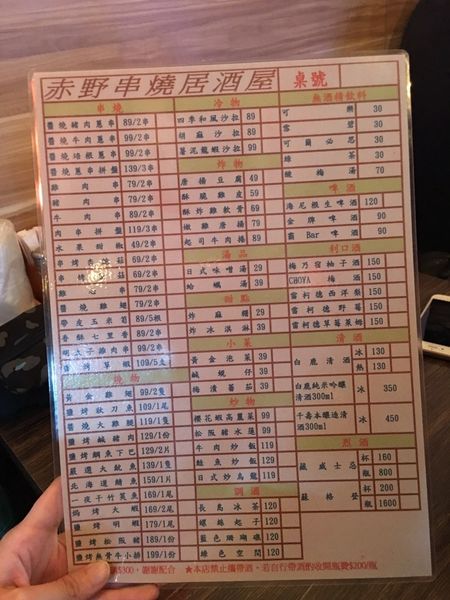 赤野串燒居酒屋 桌號
串燒
醬燒豬肉蔥串 89/2串
醬燒牛肉蔥串 99/2串
醬燒培根蔥串 99/2串
醬燒蔥串拼盤 139/3串
雞肉串 79/2串
豬肉串 79/2串
牛肉串 89/2串
肉串拼盤 119/3串
水果甜椒 49/2串
69/2串
69/2串
雞心串 79/2串
醬燒雞翅 79/2串
帶皮玉米筍 89/5根
香酥七里香 89/2串
明太子雞肉串 99/2串
鹽烤草蝦 109/5支
燒物
黃金雞翅 99/2隻
鹽烤秋刀魚 109/1尾
醬燒大雞腿 119/1隻
鹽烤鹹豬肉 129/1份
鹽烤鯛魚下巴 129/2片
嚴選大魷魚 139/1隻
北海道鯖魚 159/1片
一夜干竹莢魚 169/1尾
焗烤大蝦 169/2尾
鹽烤明蝦 179/2尾
鹽烤松阪豬 189/1份
鹽烤無骨牛小排 199/1份
冷物
四季和風沙拉 89
胡麻沙拉 89
薯泥龍蝦沙拉 99
炸物
唐揚豆腐 49
酥脆雞皮 59
酥炸雞軟骨 69
嫩雞唐揚 79
起司牛肉捲 89
湯品
日式味噌湯 29
蛤蠣湯 39
甜點
炸麻糬 29
炸冰淇淋 39
小菜
黃金泡菜 39
鹹蜆仔 39
梅漬蕃茄 39
炒物
櫻花蝦高麗菜 99
松阪豬水蓮 99
牛肉炒飯 119
鮭魚炒飯 119
日式炒烏龍 119
調酒
長島冰茶 120
螺絲起子 120
藍色珊瑚礁 120
綠色空間 120
無酒精飲料
可樂 30
雪碧 30
可爾必思 30
綠茶 30
酸梅湯 70
啤酒
海尼根生啤酒 120
金牌啤酒 90
霸Bar啤酒 90
利口酒
梅乃宿柚子酒 150
CHOYA梅酒 150
雷柯德西洋梨 150
雷柯德野莓 150
雷柯德草莓萊姆 150
清酒
白鹿清酒 冰 130
熱 130
白鹿純米吟釀清酒300ml 冰 350
千壽本釀造清酒300ml 冰 450
烈酒
蘇威士忌 杯 160
瓶 800
蘇格登 杯 200
瓶 1600
$300，謝謝配合 ★本店禁止攜帶酒，若自行帶酒酌收開瓶費$200/瓶